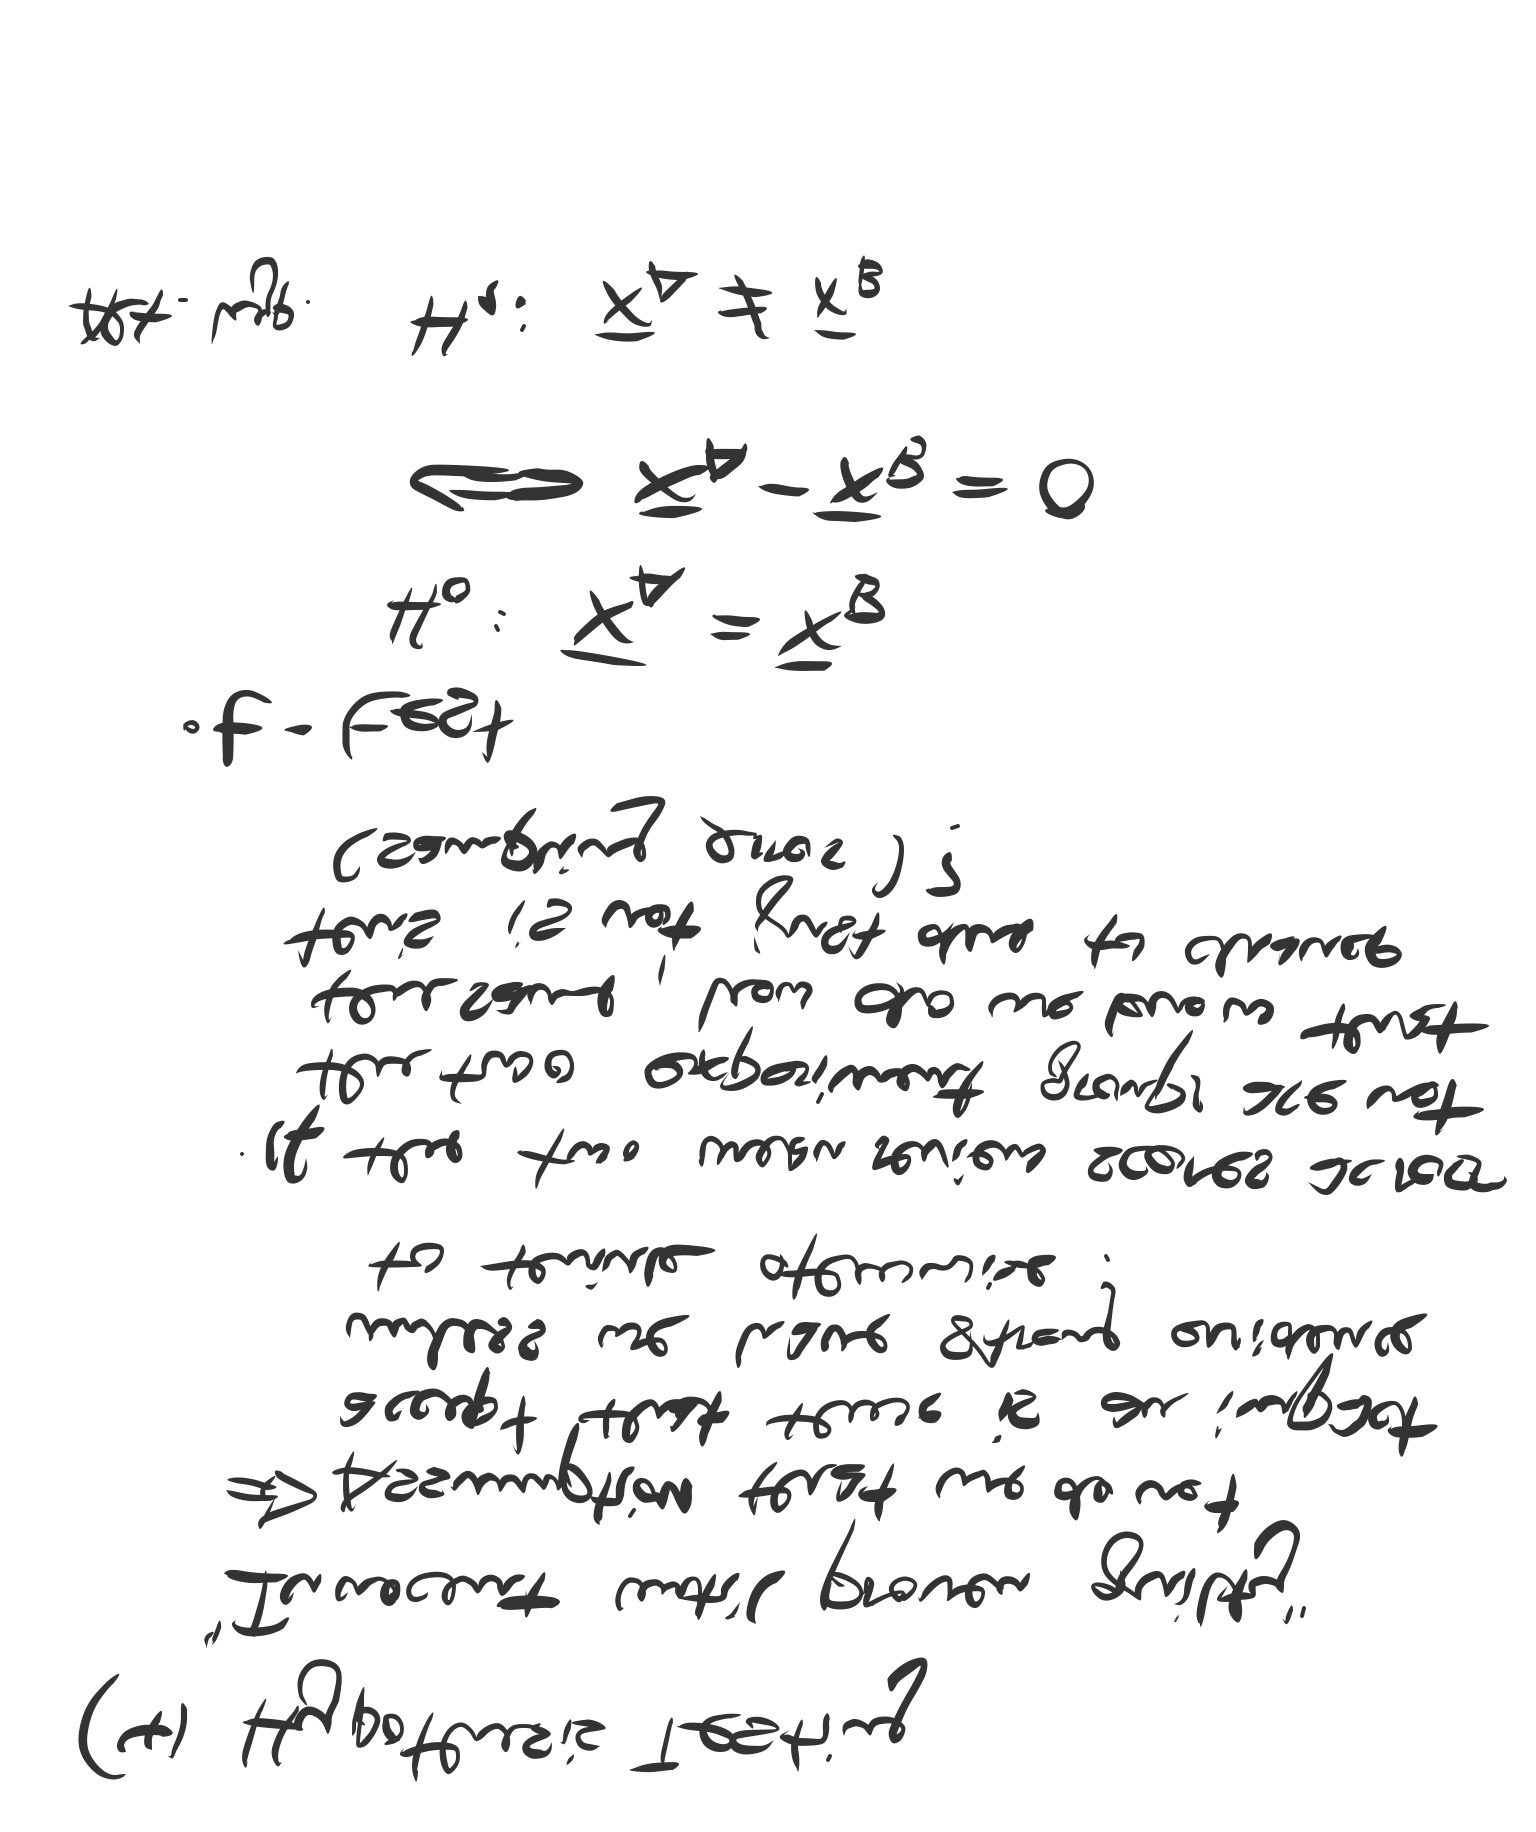 (4) Hypothesis Testing
"Innocent until proven guilty"
⇒ Assumption that we do not
accept that there is an impact
unless we have strong evidence
to think otherwise!
· If the two mean review scores across
the two experiment groups are not
the same, how do we know that
this is not just due to chance
(sampling error)?
• t-test
H₀: x̄_A = x̄_B
⟺ x̄_A - x̄_B = 0
Alt. hyp. H₁: x̄_A ≠ x̄_B